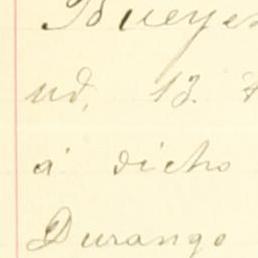 Bueyes
ud, 13.
á dicho
Durango